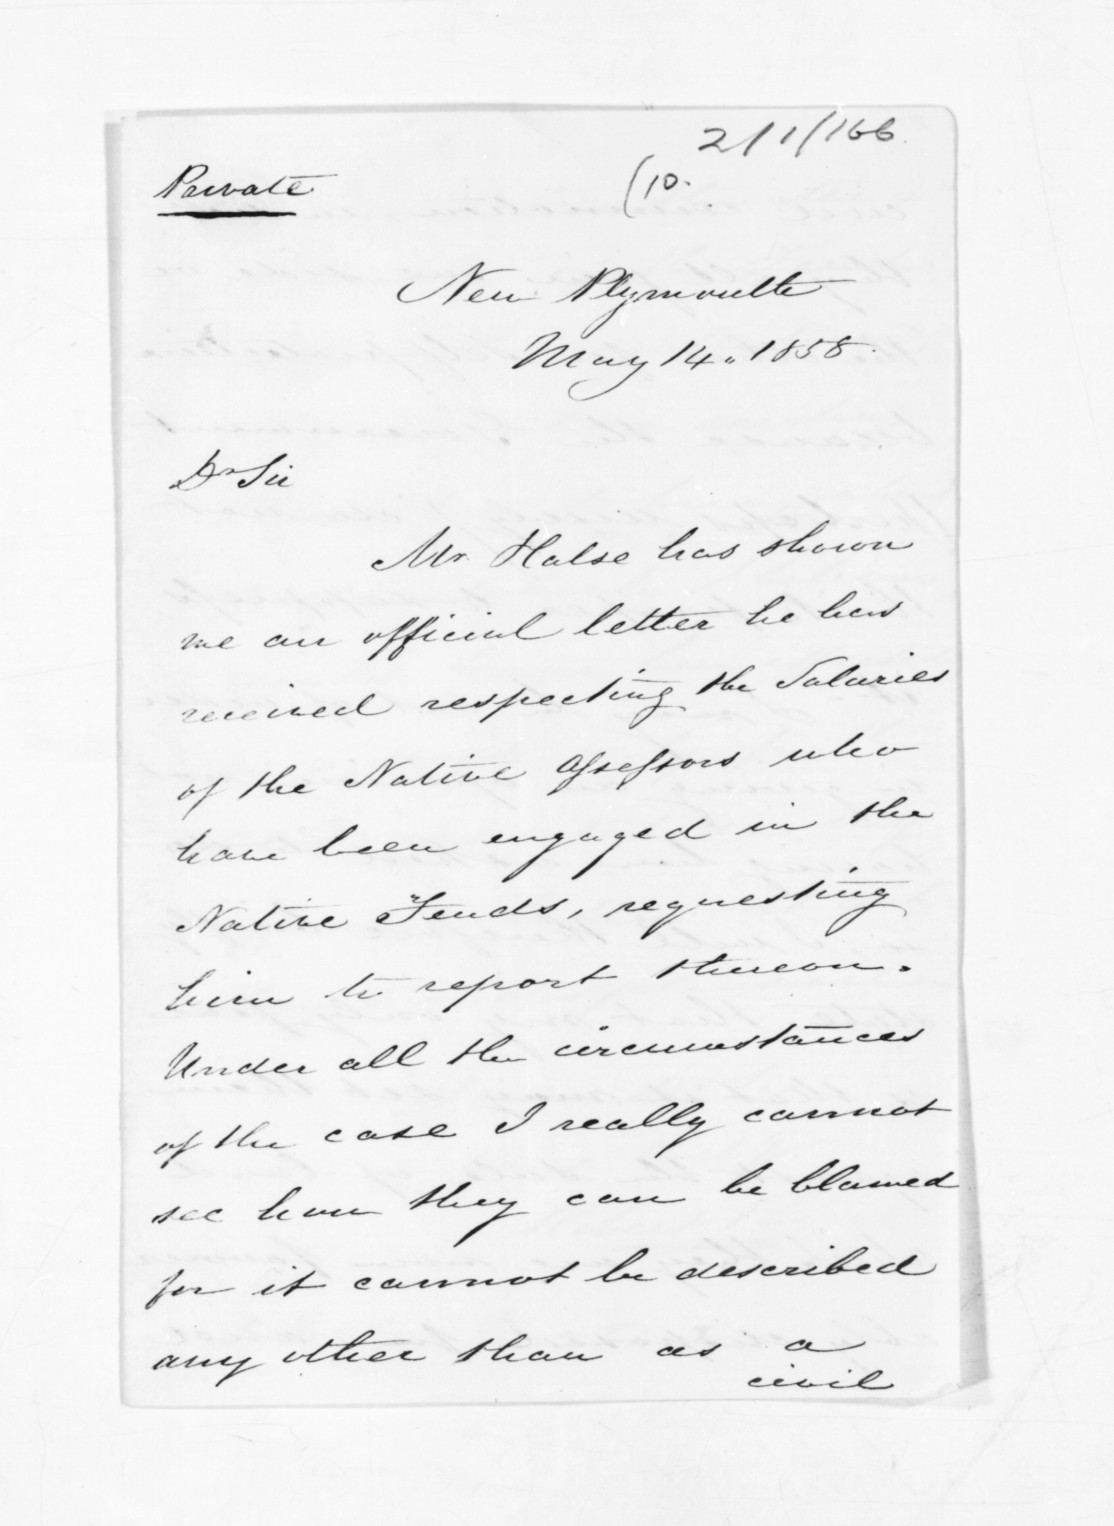 2/1/166.
(10.
Private
New Plymouth
May 14. 1858.
Dr Sir
Mr. Halse has shown
me an official letter he has
received respecting the Salaries
of the Native Assessors who
have been engaged in the
Native Feuds, requesting
him to report thereon.
Under all the circumstances
of the case I really cannot
see how they can be blamed
for it cannot be described
any other than as a
civil